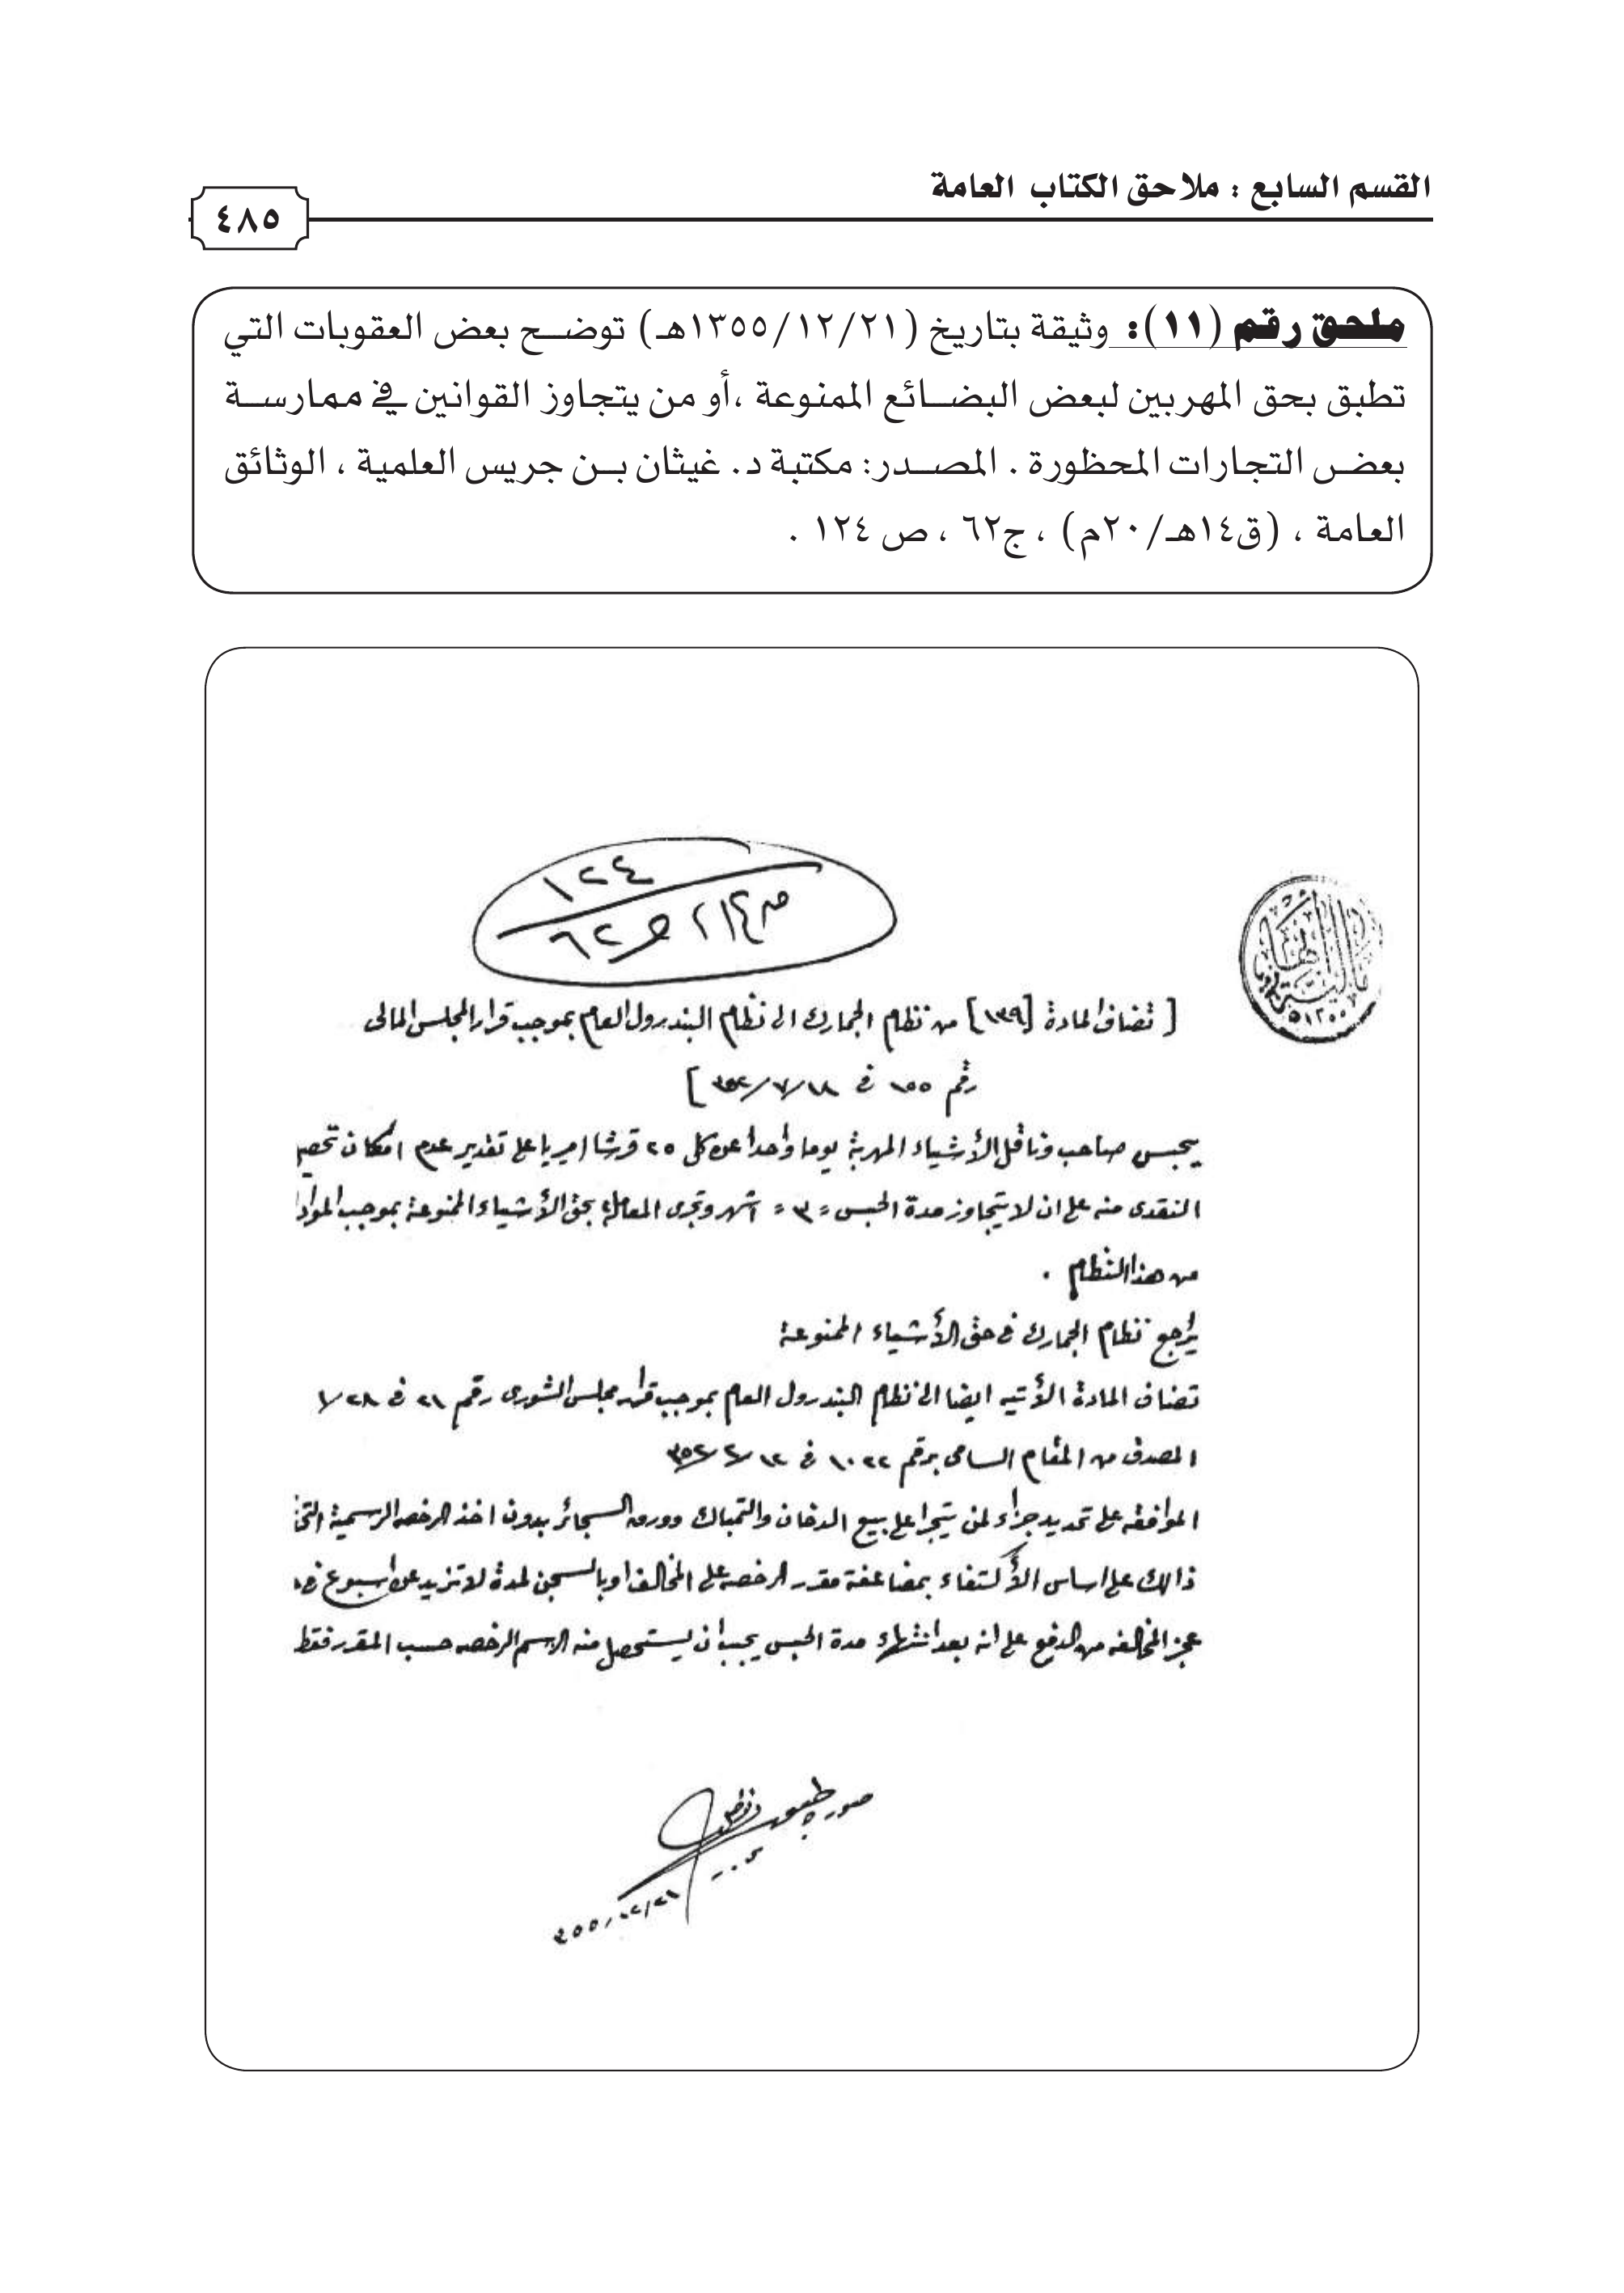 القسم السابع : ملاحق الكتاب العامة
٤٨٥
ملحق رقم (١١): وثيقة بتاريخ (١٣٥٥/١٢/٢١هـ) توضح بعض العقوبات التي
تطبق بحق المهربين لبعض البضائع الممنوعة ،أو من يتجاوز القوانين في ممارسة
بعض التجارات المحظورة . المصدر: مكتبة د. غيثان بن جريس العلمية ، الوثائق
العامة ، (ق١٤هـ/٢٠م) ، ج٦٢ ، ص ١٢٤ .
١٢٤
٦٢
[ تضاف المادة [١٣٩] من نظام الجمارك الى نظام البندرول العام بموجب قرار المجلس المالى
رقم ١٥٥ فى ١٨/٧/٣٥٢ ]
يحبس صاحب وناقل الأشياء المهربة يوما واحدا عن كل ٢٥ قرشا اميريا على تقدير عدم امكان تحصي
النقدى منه على ان لا يتجاوز مدة الحبس = ٣ = اشهر وتجرى المعاملة بحق الأشياء الممنوعة بموجب المواد
من هذا النظام .
يُرجع نظام الجمارك فى حق الأشياء الممنوعة
تضاف المادة الأتيه ايضا الى نظام البندرول العام بموجب قرار مجلس الشورى رقم ٢١ فى ٢٨/١
المصدق من المقام السامى برقم ١٠٢٢ فى ١٢/٢/٣٥٢
الموافقه على تحديد جزاء لمن يتجرا على بيع الدخان والتمباك وورق السجائر بدون اخذ الرخصه الرسمية
ذالك على اساس الأكتفاء بمضاعفة مقدر الرخصه على المخالف او بالسجن لمدة لا تزيد عن اسبوع
عجز المخالفه من الدفع على انه بعد انتهاء مدة الحبس يجب ان يستحصل منه الاسم الرخصه حسب المقدر فقط
صورة طبق